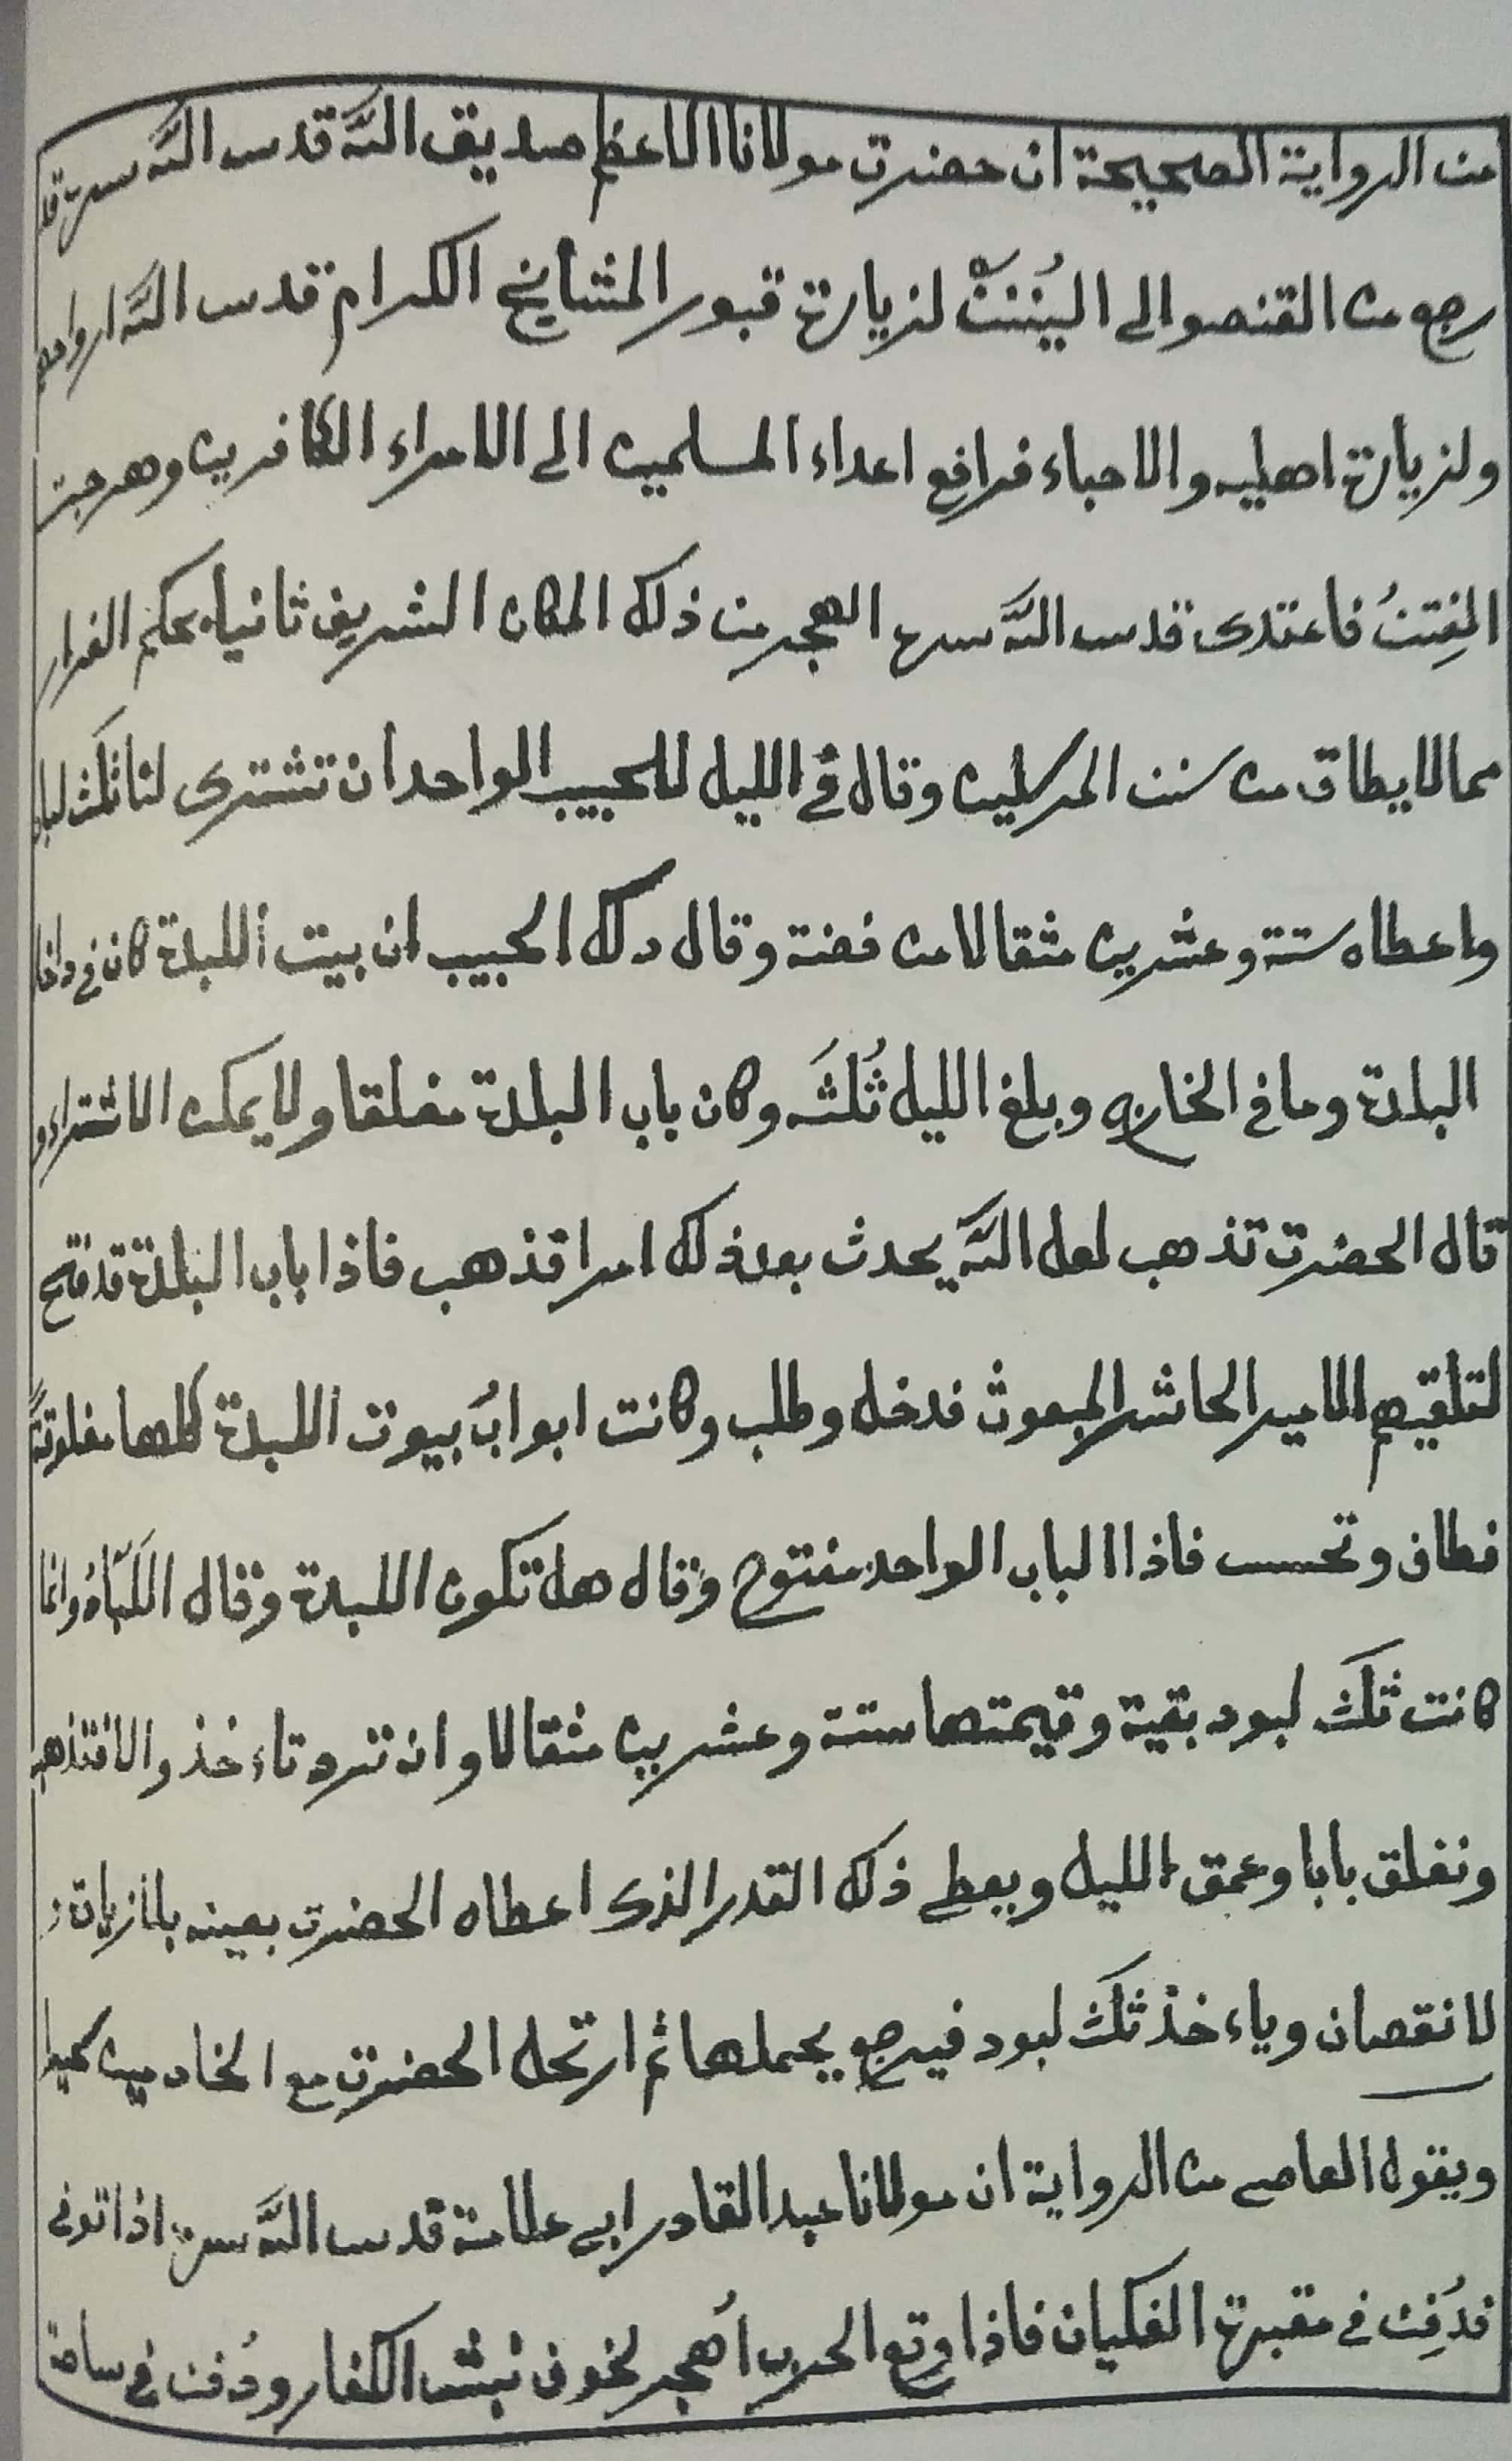 من الرواية الصحيحة ان حضرت مولانا الاعظم صديق الله قدس الله سره قد
رجع من القنصو الى اليُننْ لزيارة قبور المشايخ الكرام قدس الله ارواحهم
ولزيارة اهليه والاحباء فرافع اعداء المسلمين الى الامراء الكافرين وهرجت
الفِتنُ فاعتدى قدس الله سره الهجر من ذلك المكان الشريف ثانيا بحكم الفرار
مما لا يطاق من سنن المرسلين وقال في الليل للحبيب الواحد ان تشترى لنا ثلث
واعطاه ستة وعشرين مثقالا من فضة وقال ذلك الحبيب ان بيت اللبدة كان في
البلدة وما في الخارج وبلغ الليل ثُلثَه وكان باب البلدة مغلقا ولا يمكن الاشتراء و
قال الحضرت تذهب لعل الله يحدث بعد ذلك امرا فذهب فاذا باب البلدة قد فتح
لتلقيهم الامير الحاشر المبعوث فدخل وطلب وكانت ابوابُ بيوت اللبدة كلها مغلوقةً
فطاف وتحسس فاذا الباب الواحد مفتوح وقال هل تكون اللبدة وقال اللَبّادُ وانما
كانت ثلث لبود بقية وقيمتها ستة وعشرين مثقالا وان ترد تاءخذ والا فتذهب
ونغلق بابا وعمق الليل ويعطى ذلك القدر الذى اعطاه الحضرت بعينه بلا زيادة و
لا نقصان وياءخذ ثلث لبود فيرجع يحملها ثم ارتحل الحضرت مع الخادمين
ويقول العاصى من الرواية ان مولانا عبد القادر ابى علامة قدس الله سره اذا توفى
فدُفِن في مقبرة الفكيان فاذا وقع الحرب اُهجر لخوف نبش الكفار ودُفن في ساحة